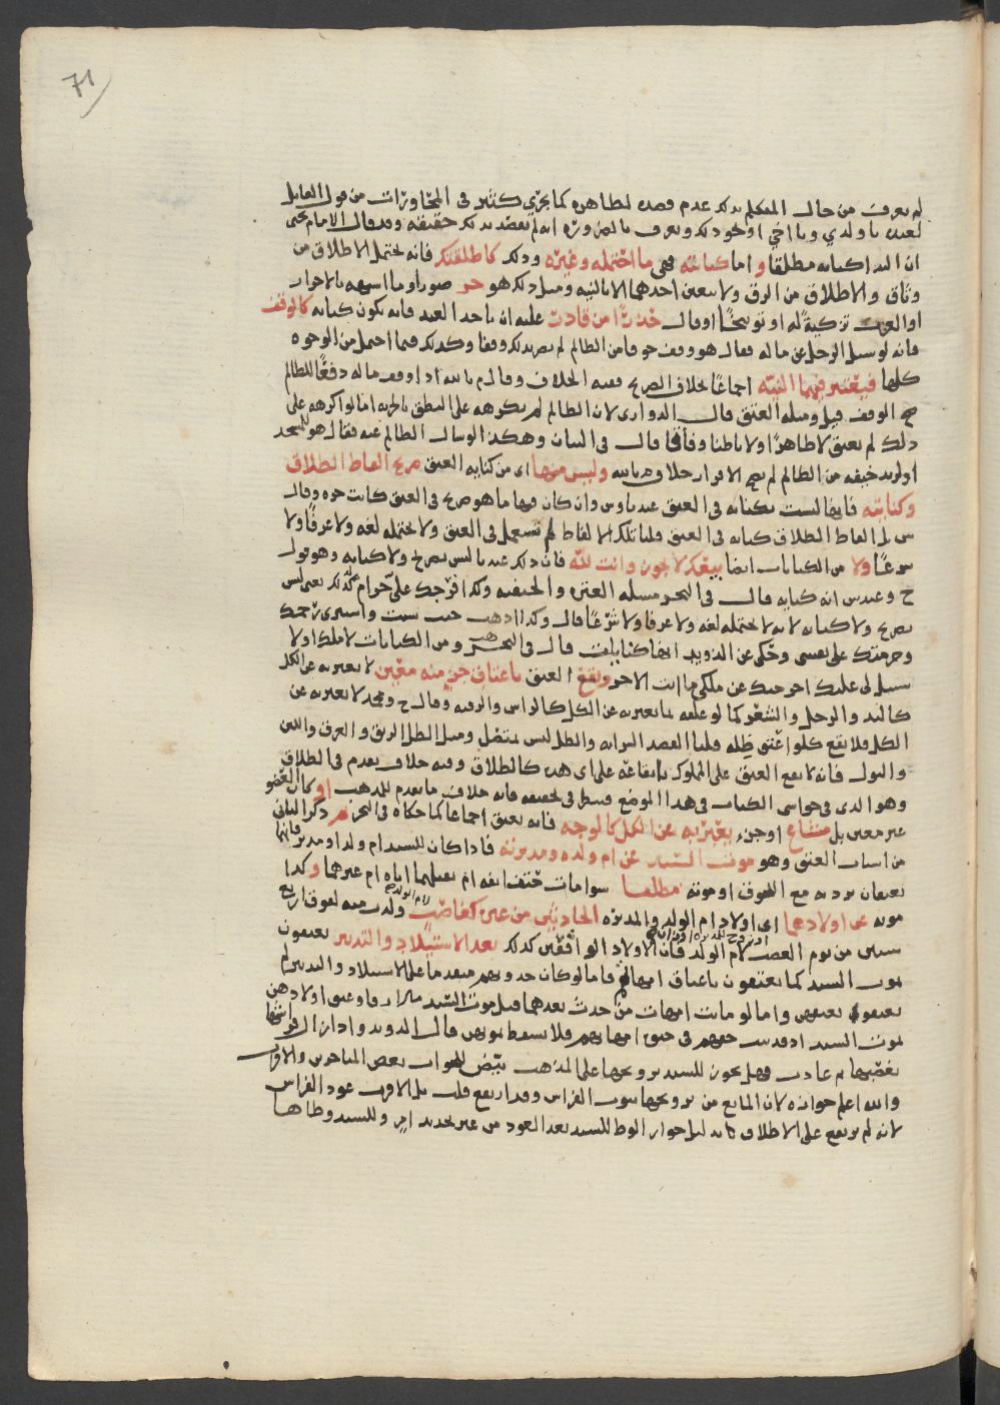 71
لم يعرف من حال المتكلم بذلك عدم قصده لظاهره كما يجري كثير في المحاورات من قول القايل
لعبده يا ولدي ويا اخي او نحو ذلك ويعرف بالضرورة انه لم يقصد بذلك حقيقته وقد قال الامام يحيى
ان الندا كنايه مطلقا واما كنايته فهي ما احتمله وغيره وذلك كاطلقتك فانه يحتمل الاطلاق من
وثاق والاطلاق من الرق ولا يتعين احدهما الا بالنيه ومثل ذلك هو حر
او قال حذرًا من قادر عليه ان ياخد العبد فانه يكون كنايه كالوقف
فانه لو سيل الرجل عن ماله فقال هو وقف خوفا من الظالم لم يصر بذلك وقفا وكذلك فيما احتمل من الوجوه
كلها فيعتبر فيهما النيه اجماعًا بخلاف الصريح ففيه الخلاف وقال م بالله اذا وقف ماله دفعًا للظالم
صح الوقف قيل ومثله العتق قال الدواري لان الظالم لم يكرهه على النطق بالحريه اما لو اكرهه على
ذلك لم يعتق لا ظاهرًا ولا باطنا وفاقا قال في البيان وهكذا لو سال الظالم عنه فقال هو للمسجد
او لزيد خيفه من الظالم لم يصح الاقرار خلاف م بالله وليس منها اى من كنايه العتق صريح الفاظ الطلاق
وكنايته فانها ليست بكنايه في العتق وان كان فيها ما هو صريح في العتق كانت حره وقال
ش بل الفاظ الطلاق كنايه في العتق قلنا تلك الالفاظ لم تستعمل في العتق ولا تحتمله لغه ولا عرفًا ولا
شرعًا ولا من الكنايات ايضا بيعك لا يجوز وانت لله فان ذلك عندنا ليس بصريح ولا كنايه وهو قول
ح وعند ش انه كنايه قال في البحر مسله العتره والحنفيه وكذا فرجك علي حرام
بصريح ولا كنايه لانه لا يحتمله لغه ولا عرفا ولا شرعًا قال وكذا اذهب حيث شيت واستبري رحمك
وحرمتك على نفسى وحكى عن الدويد انها كنايات قال في البحر ومن الكنايات لا ملك او لا
سبيل لي عليك اخرجتك عن ملكي ما انت الا حر ويقع العتق باعتاق جزء منه معين لا يعبر به عن الكل
كاليد والرجل والشعر كما لو علقه بما يعبر به عن الكل كالراس والرقبه وقال ح ومحمد لا يعبر به عن
الكل فلا يقع كلو اعتق ظله قلنا القصد السرايه والظل ليس بمتصل ومثل الظل الريق والعرق واللبن
والبول فانه لا يقع العتق على المملوك بايقاعه على اى هذه كالطلاق وفيه خلاف تقدم في الطلاق
وهو الذى في حواشى الكتاب في هذا الموضع خلاف ما تقدم للمذهب او كان العضو
غير معين بل مشاع او جزء يعبر به عن الكل كالوجه فانه يعتق اجماعا كما حكاه في البحر ثم ذكر الثاني
من اسباب العتق وهو موت السيد عن ام ولده ومدبرته فاذا كان للسيد ام ولد او مدبر فانهما
يعتقان بردته مع اللحوق او موته مطلقا سوا مات حتف انفه ام بقتلهما اياه ام غيرهما وكذا
موته عن اولادهما اى اولاد ام الولد والمدبره الحادثين من غيره كفاضت
سنين من يوم الولد فان الاولاد الواقفين كذلك بعد الاستيلاد والتدبير يعتقون
بموت السيد كما يعتقون باعتاق امهاتهم فاما لو كان حدوثهم متقدما على الاستيلاد والتدبير لم
يعتقوا بعتقهن واما لو ماتت امهات من حدث بعدهما قبل موت السيد
بموت السيد اذ قد ثبت حقهم في حيوة امهاتهم فلا يسقط بموتهن قال الدويد واذا زال فراشها
بغصبها ثم عادت فهل يجوز للسيد تزويجها على المذهب بيّض للجواب بعض المتاخرين والاقرب
والله اعلم جوازه لان المانع من تزويجها ثبوت الفراش وقد ارتفع قلت بل الاقرب عود الفراش
لانه لم يرتفع على الاطلاق بدليل جواز الوطئ للسيد بعد العود من غير تجديد امر وللسيد وطئها